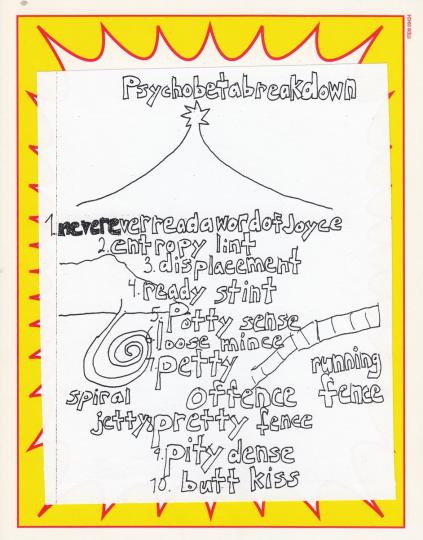 Psychobetabreakdown
1. nevereverreadawordofJoyce
2. entropy lint
3. displacement
4. ready stint
5. Potty sense
6. loose mince
7. petty offence
running fence
spiral jetty
8. pretty fence
9. pity dense
10. butt kiss